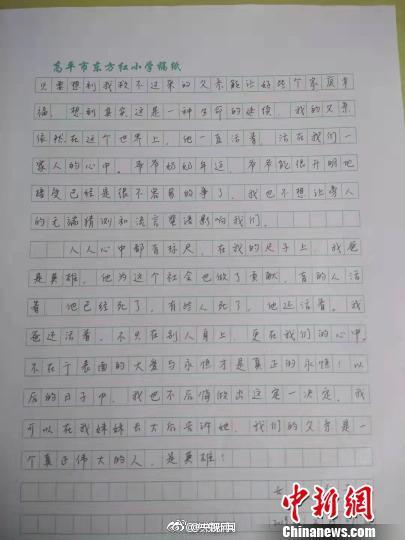 高平市东方红小学稿纸
只要想到我救不过来的父亲能让好些个家庭幸
福，想到其实这是一种生命的延续，我的父亲
依然在这个世界上，他一直活着，活在我们一
家人的心中。爷爷奶奶年迈，爷爷能很开明地
接受已经是很不容易的事了，我也不想让旁人
的无端猜测和流言蜚语影响我们。
人人心中都有标尺，在我的尺子上，我爸
是英雄，他为这个社会也做了贡献，有的人活
着 他已经死了，有些人死了，他还活着。我
爸还活着，不只在别人身上，更在我们的心中。
不在于表面的大爱与永恒才是真正的永恒！以
后的日子中，我也不后悔做出这定一决定，我
可以在我妹妹长大后告诉她，我们的父亲是一
个真正伟大的人，是英雄！
女
@央视网
中新网